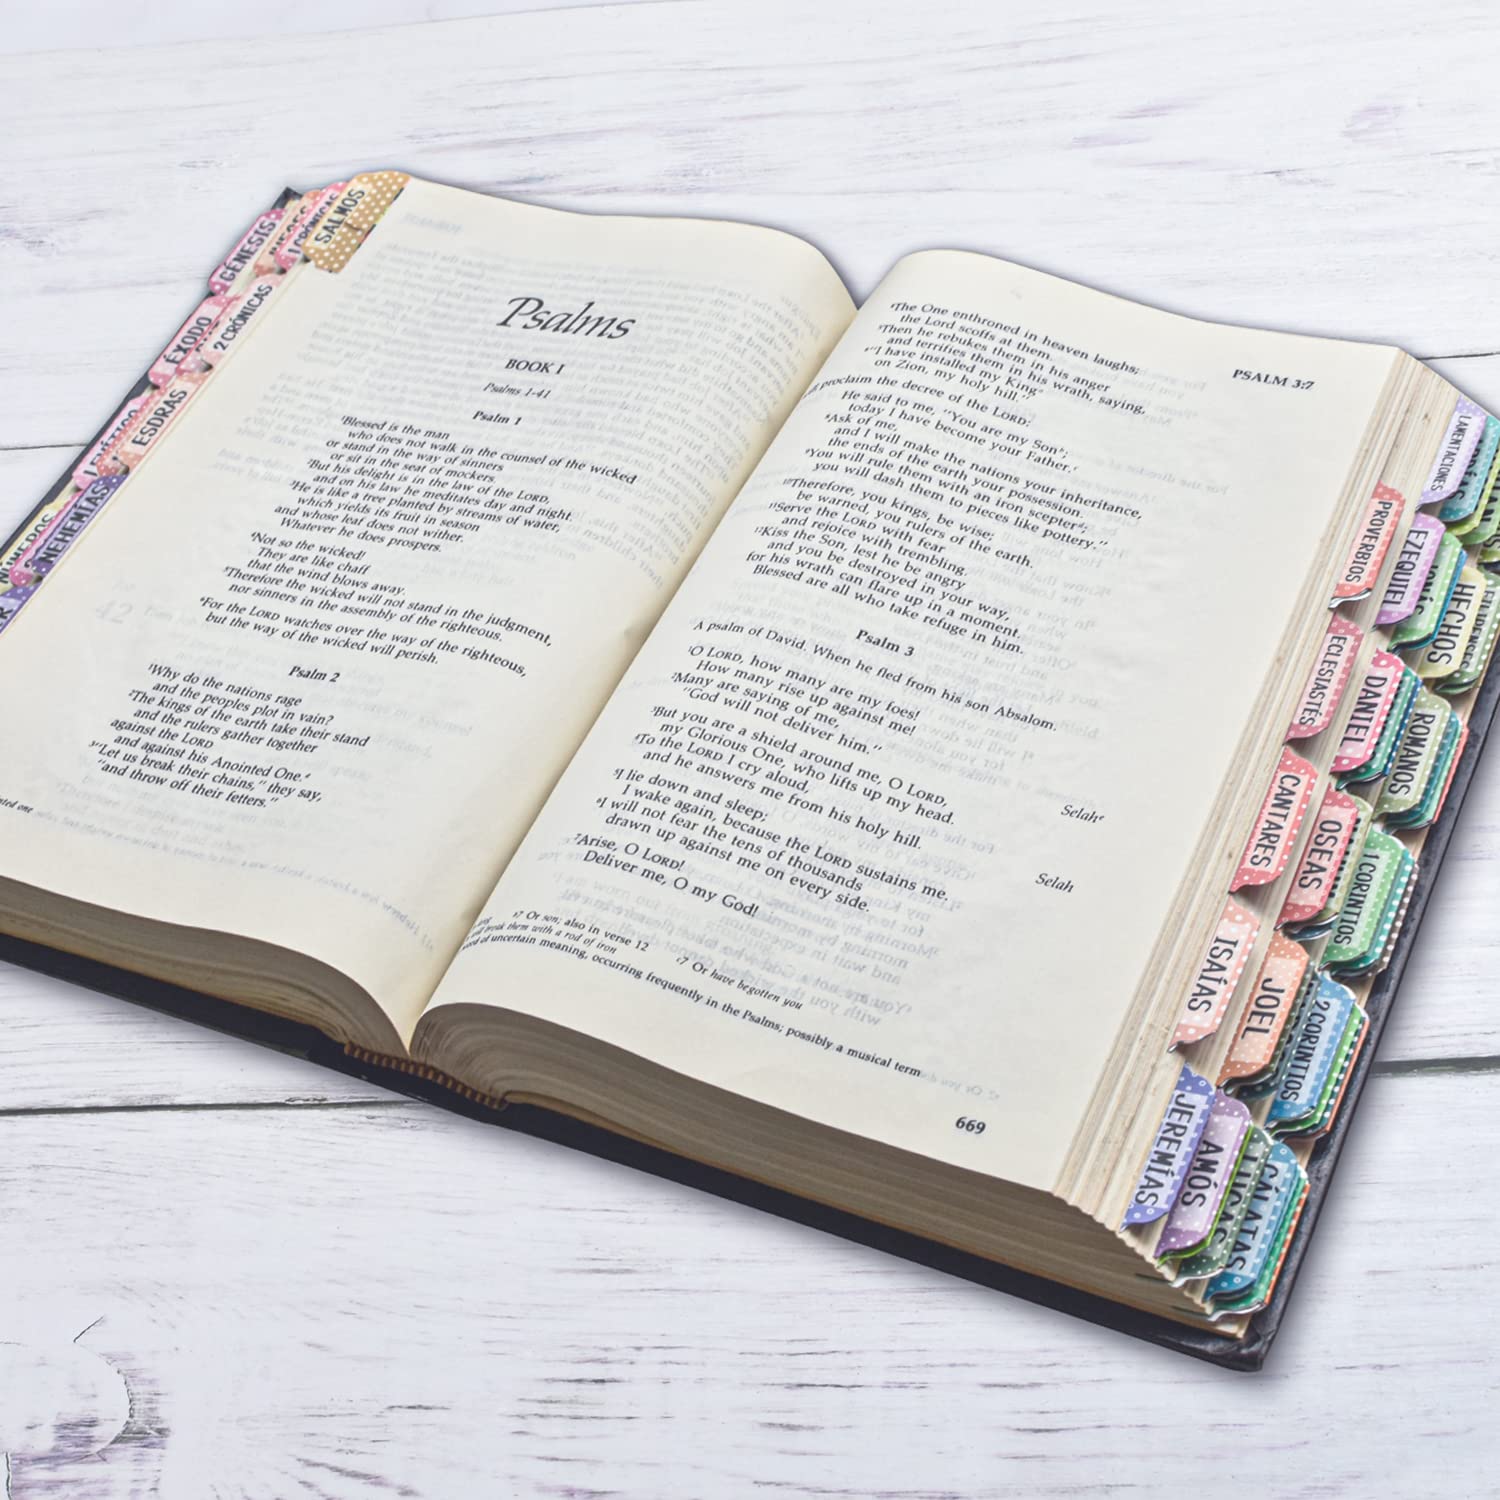 GÉNESIS
1 CRÓNICAS
SALMOS
ÉXODO
2 CRÓNICAS
ESDRAS
NÚMEROS
NEHEMÍAS
Psalms
BOOK I
Psalms 1-41
Psalm 1
¹Blessed is the man
who does not walk in the counsel of the wicked
or stand in the way of sinners
or sit in the seat of mockers.
²But his delight is in the law of the LORD,
and on his law he meditates day and night.
³He is like a tree planted by streams of water,
which yields its fruit in season
and whose leaf does not wither.
Whatever he does prospers.
⁴Not so the wicked!
They are like chaff
that the wind blows away.
⁵Therefore the wicked will not stand in the judgment,
nor sinners in the assembly of the righteous.
⁶For the LORD watches over the way of the righteous,
but the way of the wicked will perish.
Psalm 2
¹Why do the nations rage
and the peoples plot in vain?
²The kings of the earth take their stand
and the rulers gather together
against the LORD
and against his Anointed One.
³"Let us break their chains," they say,
"and throw off their fetters."
one
PSALM 3:7
⁴The One enthroned in heaven laughs;
the Lord scoffs at them.
⁵Then he rebukes them in his anger
and terrifies them in his wrath, saying,
⁶"I have installed my King
on Zion, my holy hill."
proclaim the decree of the LORD:
He said to me, "You are my Son;
today I have become your Father.
⁸Ask of me,
and I will make the nations your inheritance,
the ends of the earth your possession.
⁹You will rule them with an iron scepter;
you will dash them to pieces like pottery."
¹⁰Therefore, you kings, be wise;
be warned, you rulers of the earth.
¹¹Serve the LORD with fear
and rejoice with trembling,
¹²Kiss the Son, lest he be angry
and you be destroyed in your way,
for his wrath can flare up in a moment.
Blessed are all who take refuge in him.
Psalm 3
A psalm of David. When he fled from his son Absalom.
¹O LORD, how many are my foes!
How many rise up against me!
²Many are saying of me,
"God will not deliver him."
Selah
³But you are a shield around me, O LORD,
my Glorious One, who lifts up my head.
⁴To the LORD I cry aloud,
and he answers me from his holy hill.
Selah
⁵I lie down and sleep;
I wake again, because the LORD sustains me.
⁶I will not fear the tens of thousands
drawn up against me on every side.
⁷Arise, O LORD!
Deliver me, O my God!
7 Or son; also in verse 12
7 Or have begotten you
break them with a rod of iron
word of uncertain meaning, occurring frequently in the Psalms; possibly a musical term
669
LAMENTACIONES
PROVERBIOS
EZEQUIEL
HECHOS
ECLESIASTÉS
DANIEL
ROMANOS
CANTARES
OSEAS
1 CORINTIOS
ISAÍAS
JOEL
2 CORINTIOS
JEREMÍAS
AMÓS
GÁLATAS